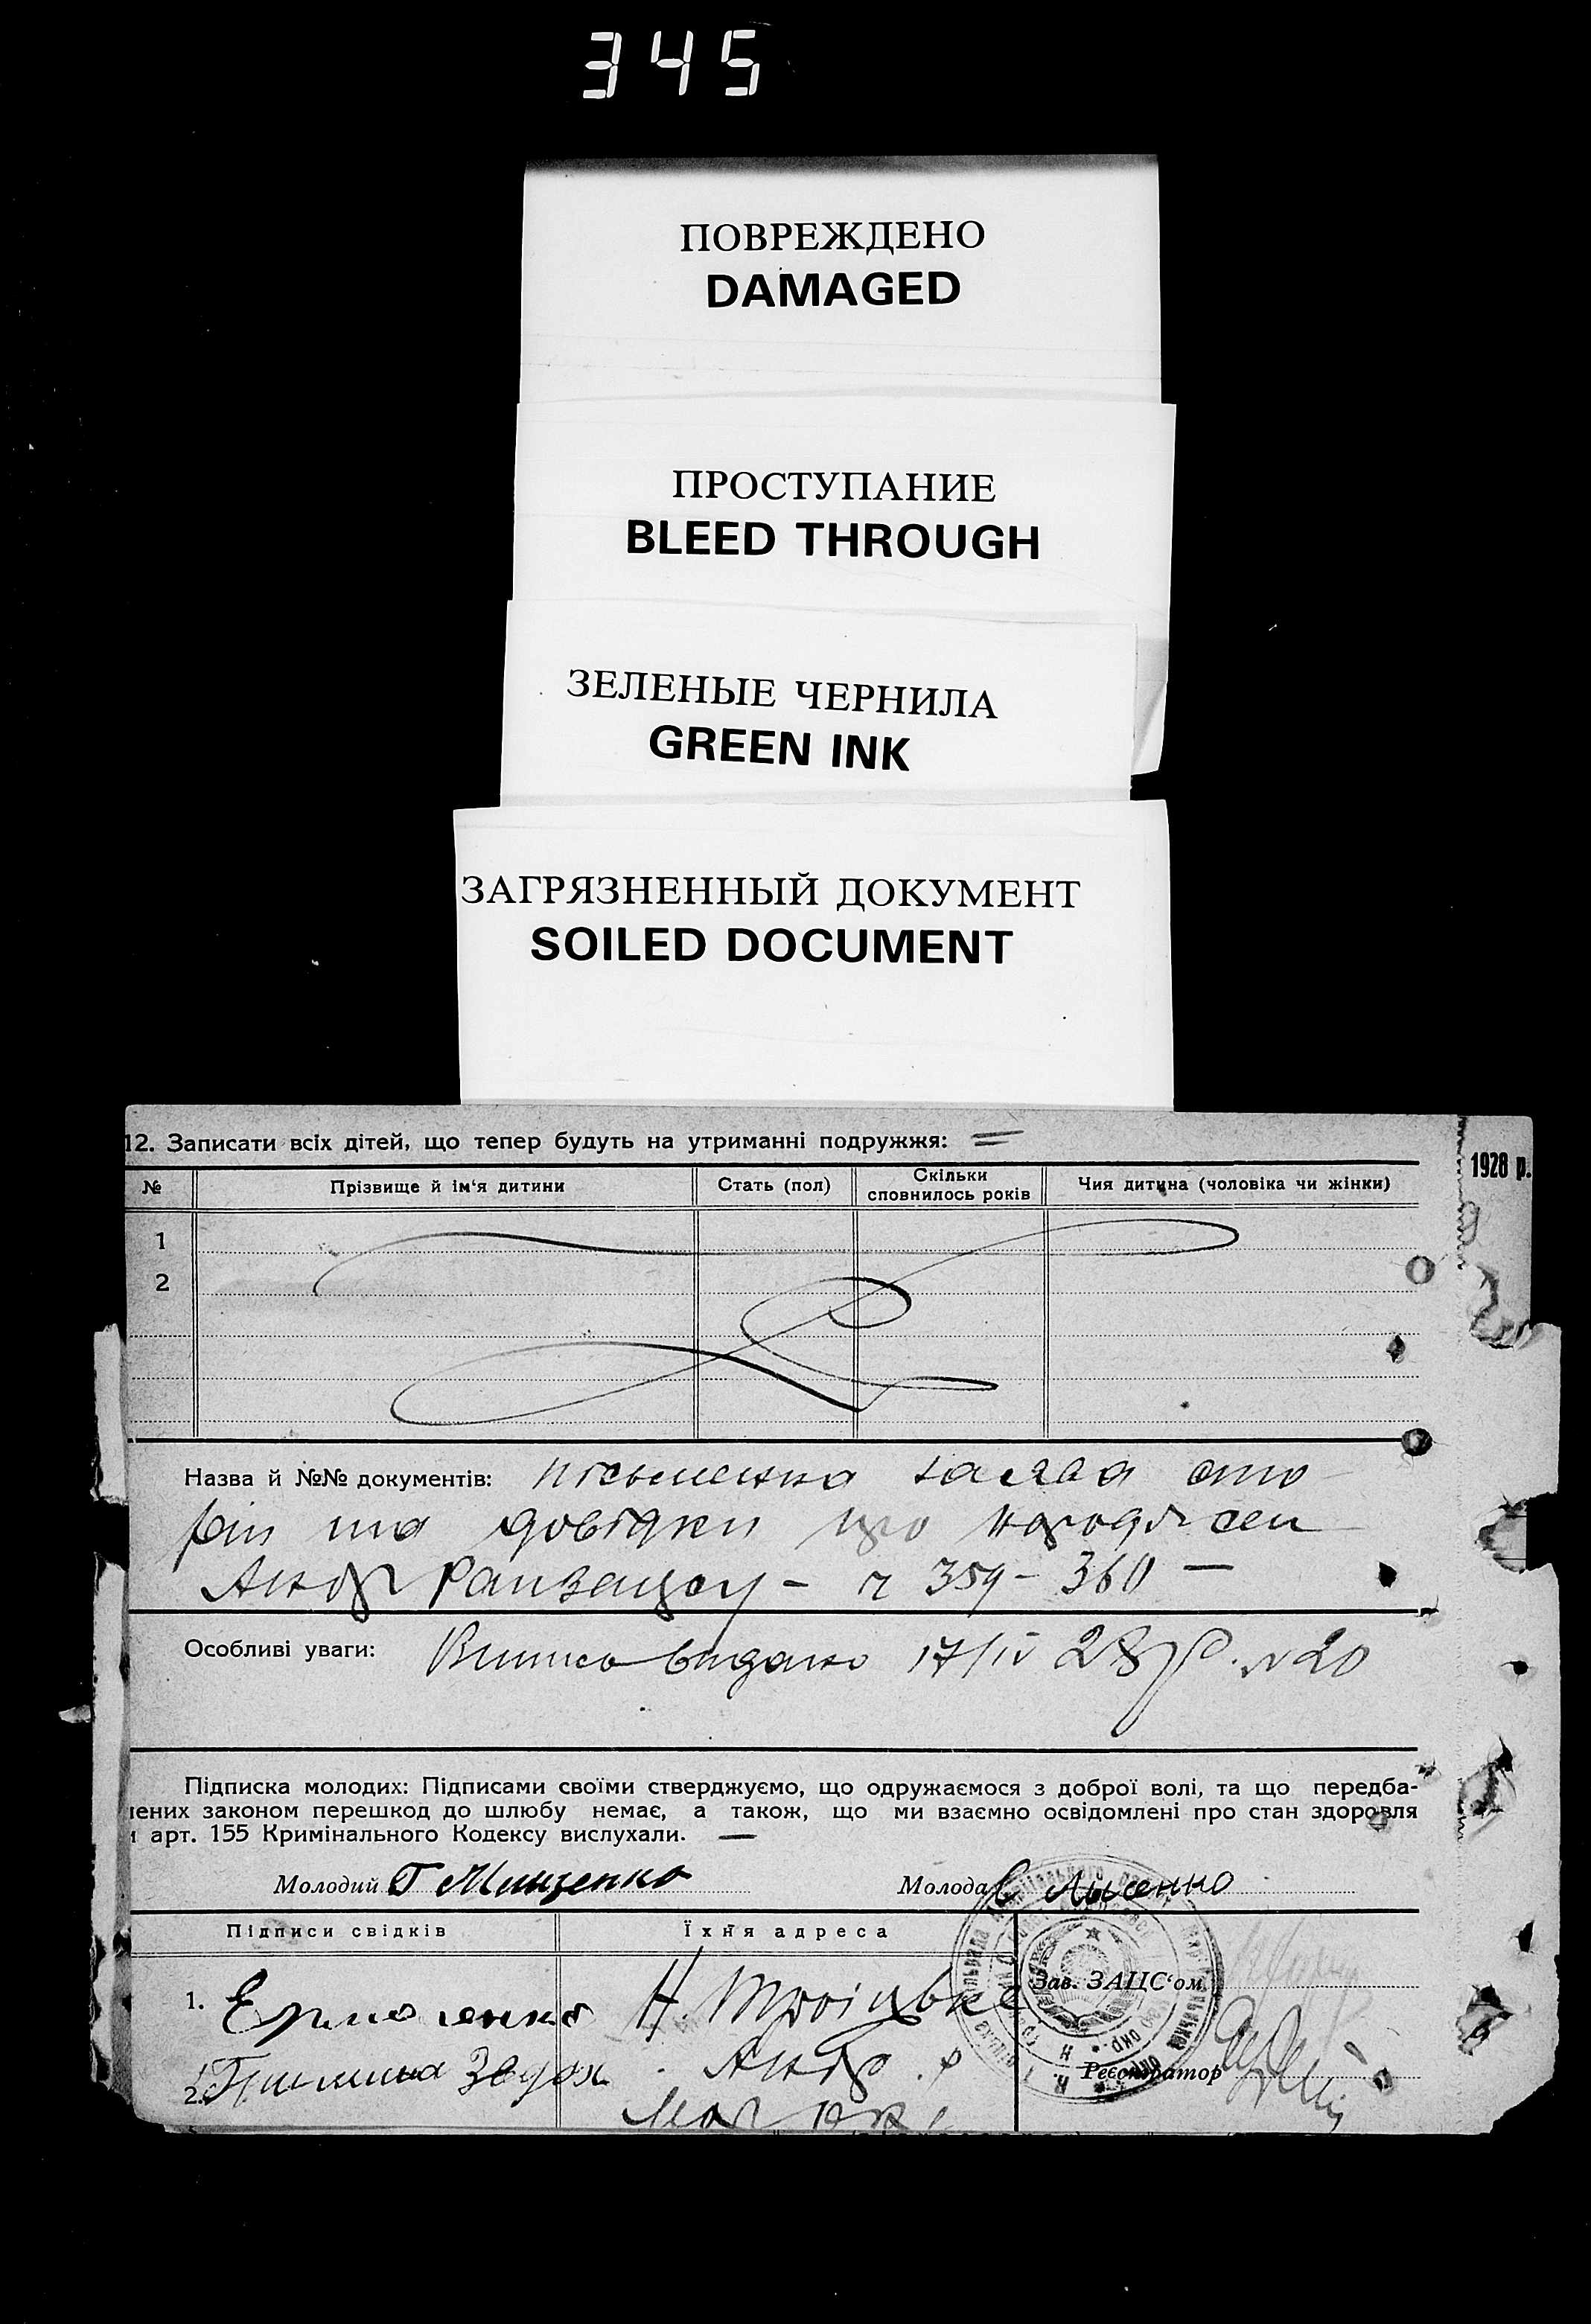 345
ПОВРЕЖДЕНО
DAMAGED
ПРОСТУПАНИЕ
BLEED THROUGH
ЗЕЛЕНЫЕ ЧЕРНИЛА
GREEN INK
ЗАГРЯЗНЕННЫЙ ДОКУМЕНТ
SOILED DOCUMENT
12. Записати всіх дітей, що тепер будуть на утриманні подружжя: =
1928 р.
№ Прізвище й ім'я дитини Стать (пол) Скільки сповнилось років Чия дитина (чоловіка чи жінки)
1
2
Назва й №№ документів: письменна заява сто
рін та довідки що
359 – 360 —
Особливі уваги: Випись видано 17/IV 28 р. N 20
Підписка молодих: Підписами своїми стверджуємо, що одружаємося з доброї волі, та що передба-
чених законом перешкод до шлюбу немає, а також, що ми взаємно освідомлені про стан здоровля
й арт. 155 Кримінального Кодексу вислухали. —
Молодий Г Мищенко Молода Є Лысенко
Підписи свідків Їхня адреса
Зав. ЗАЦС'ом
1. Ермоленко Н. Троіцьке
2. Реєстратор